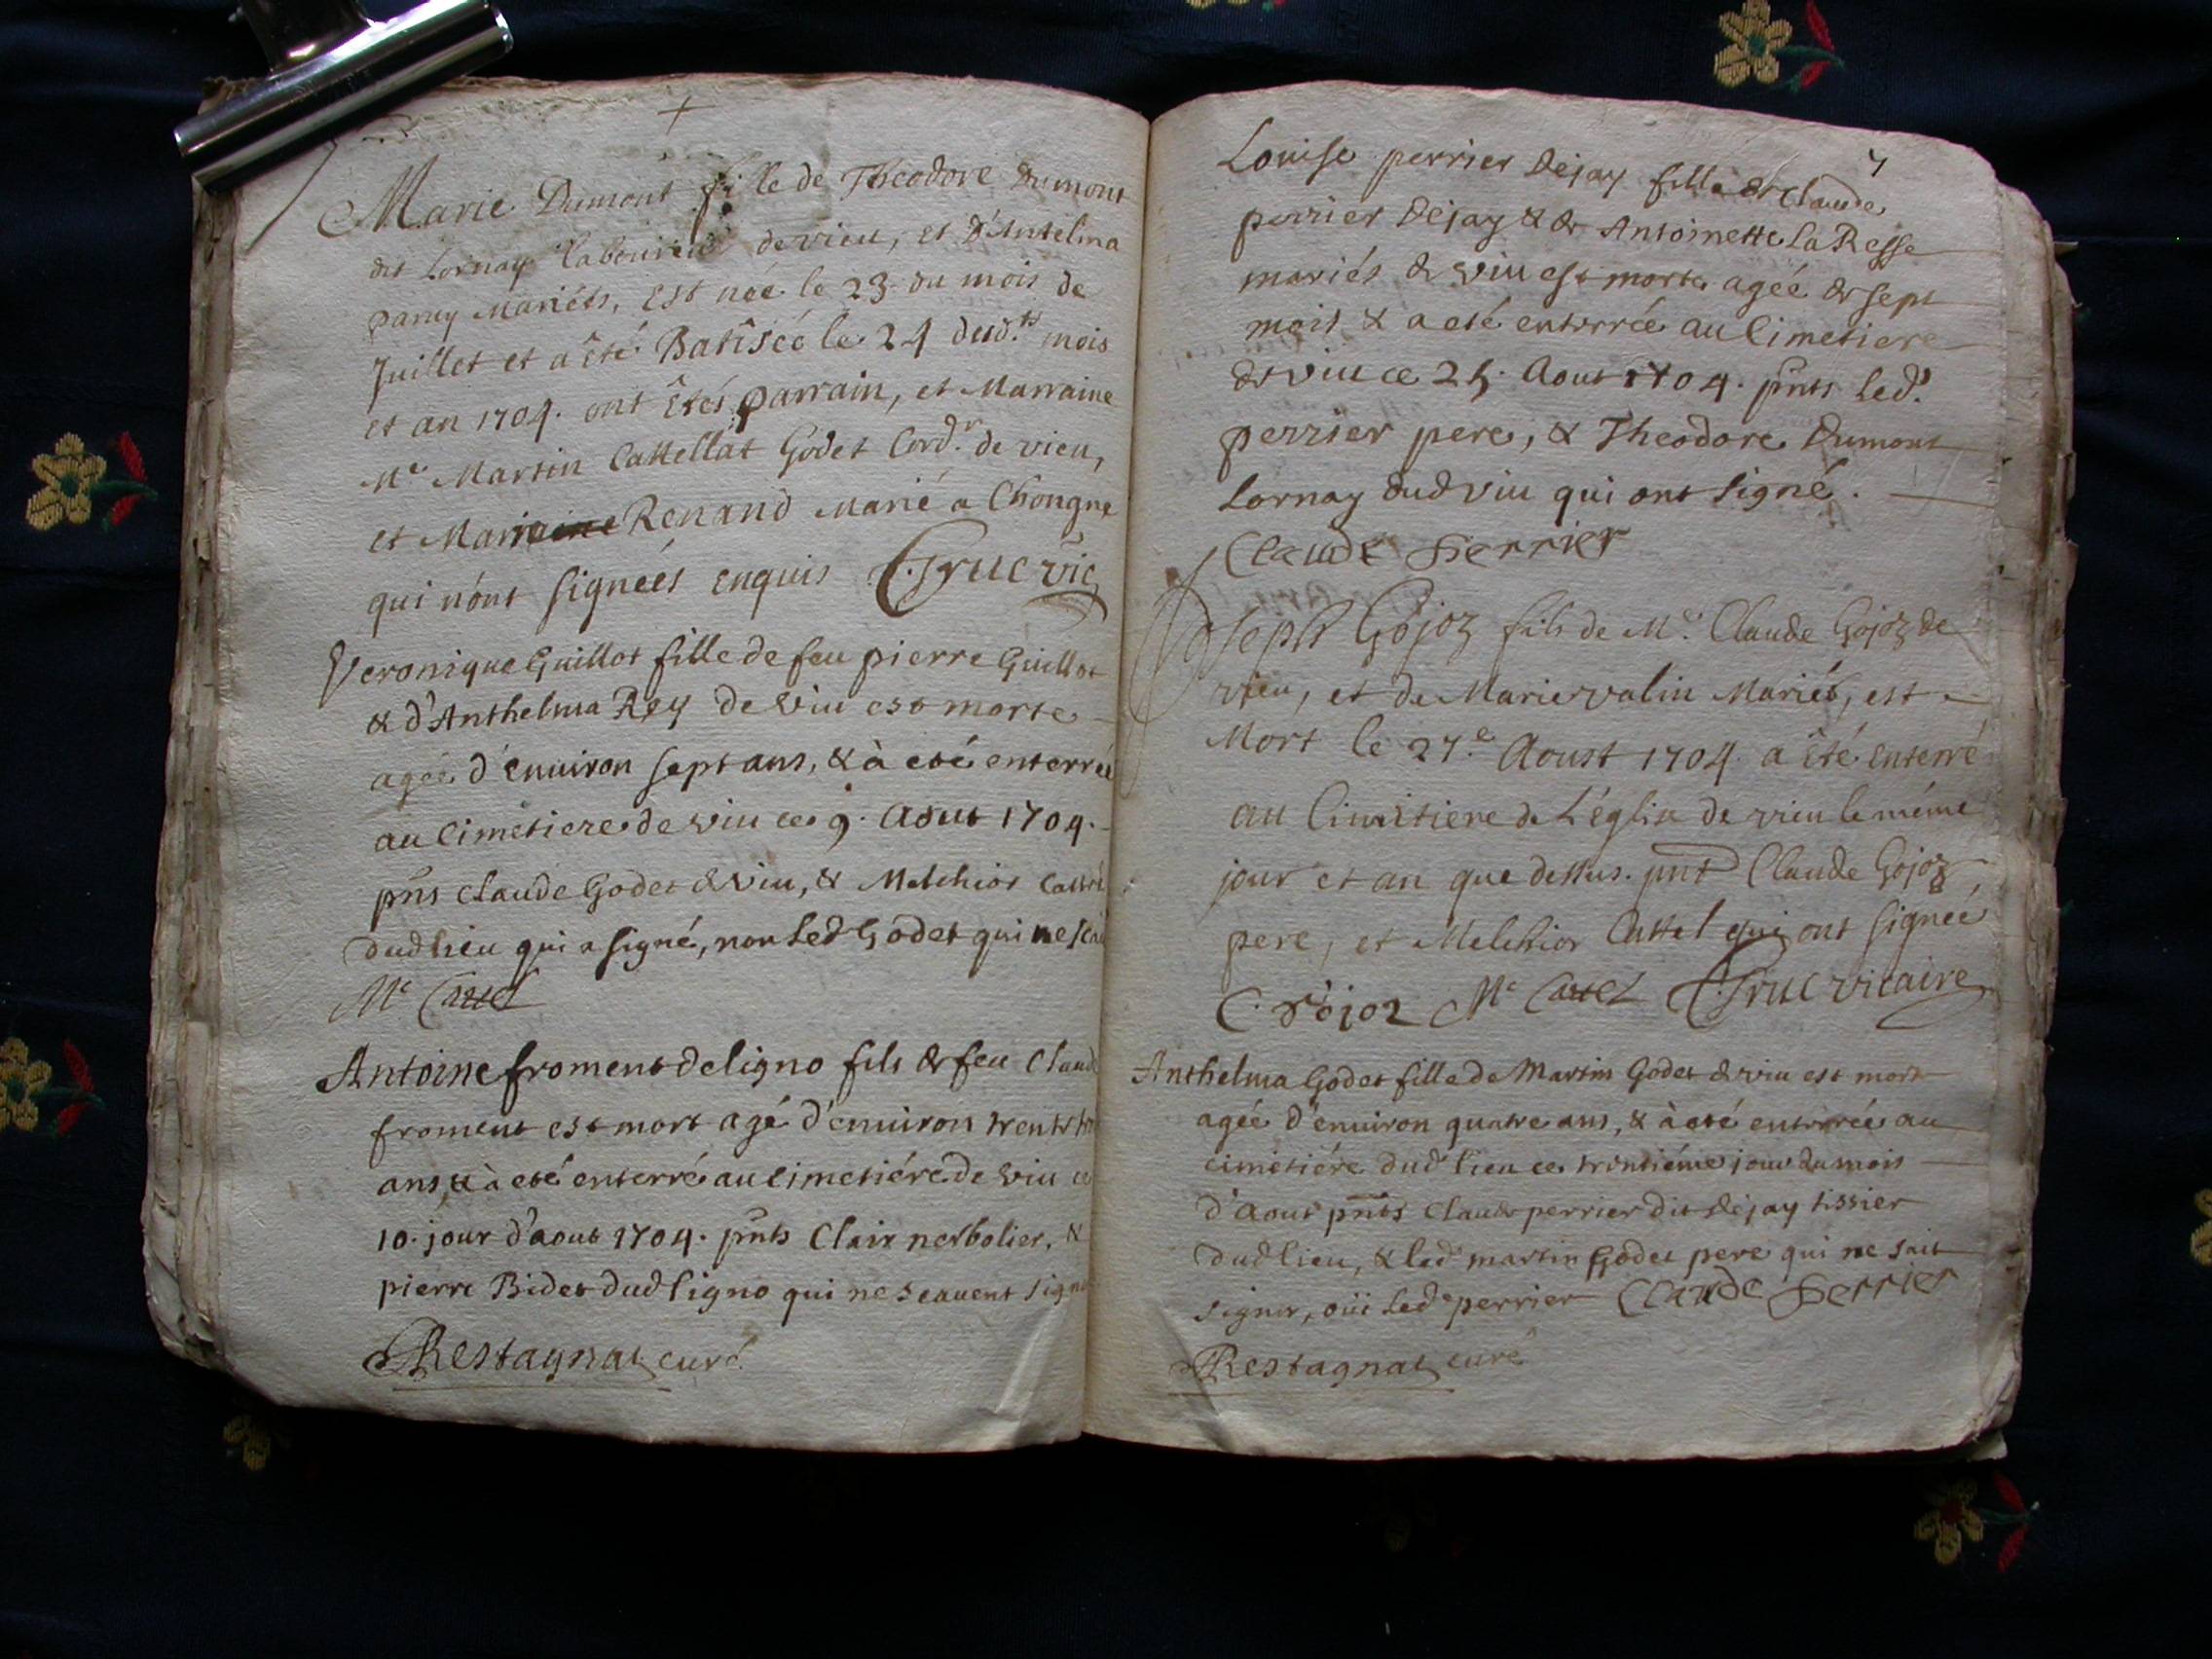 Marie Dumont fille de Theodore Dumont
dit Lornay laboureur de vieu, et D'Antelma
parny Mariés, Est née le 23 du mois de
Juillet et a été Batisée le 24 dud.t mois
et an 1704. ont Étés parrain, et Marraine
M.e Martin Cattellat Godet Cord.r de vieu,
et Renand Marié a Chongne
qui n'ont signées enquis C. Truc vic
Veronique Guillot fille de feu pierre Guillot
& d'Anthelma Rey de Viu est morte
agée d'enuiron sept ans, & à eté enterrée
au Cimetiere de viu ce 9. Aout 1704.
pnts Claude Godet & Viu, & Melchior
dud lieu qui a signé, non Led Godet qui ne
M.e Cattel
Antoine froment de ligno fils de feu Claude
froment est mort agé d'enuiron
ans & à eté enterré au cimetiére de Viu ce
10. jour d'aout 1704. pnts Clair nerbolier, &
pierre Bidet dud ligno qui ne scauent signer
Restagnat curé
7
Louise perrier Dejay fille de Claude
perrier Dejay & de Antoinette La Resse
mariés de Viu est morte agée de sept
mois & a eté enterrée au Cimetiere
de viu ce 25. Aout 1704. pnts Led.
perrier pere, & Theodore Dumont
Lornay dud viu qui ont signé.
Claude perrier
Joseph Gojoz fils de M.e Claude Gojoz de
vieu, et de Marie valin Mariés, est
Mort le 27.e Aoust 1704. a Été Enterré
au Cimitiere de L'église de vieu le méme
jour et an que dessus. pnt Claude Gojoz,
pere, et Melchior Cattel qui ont signée
C. Gojoz M.e Cattel C. Truc vicaire
Anthelma Godet fille de Martin Godet & viu est morte
agée d'enuiron quatre ans, & à eté enterrée au
cimetiére dud lieu ce trentiéme jour du mois
d'Aout pnts Claude perrier dit Dejay tissier
dud lieu, & led martin Godet pere qui ne sait
signer, oüi Led perrier Claude perrier
Restagnat curé